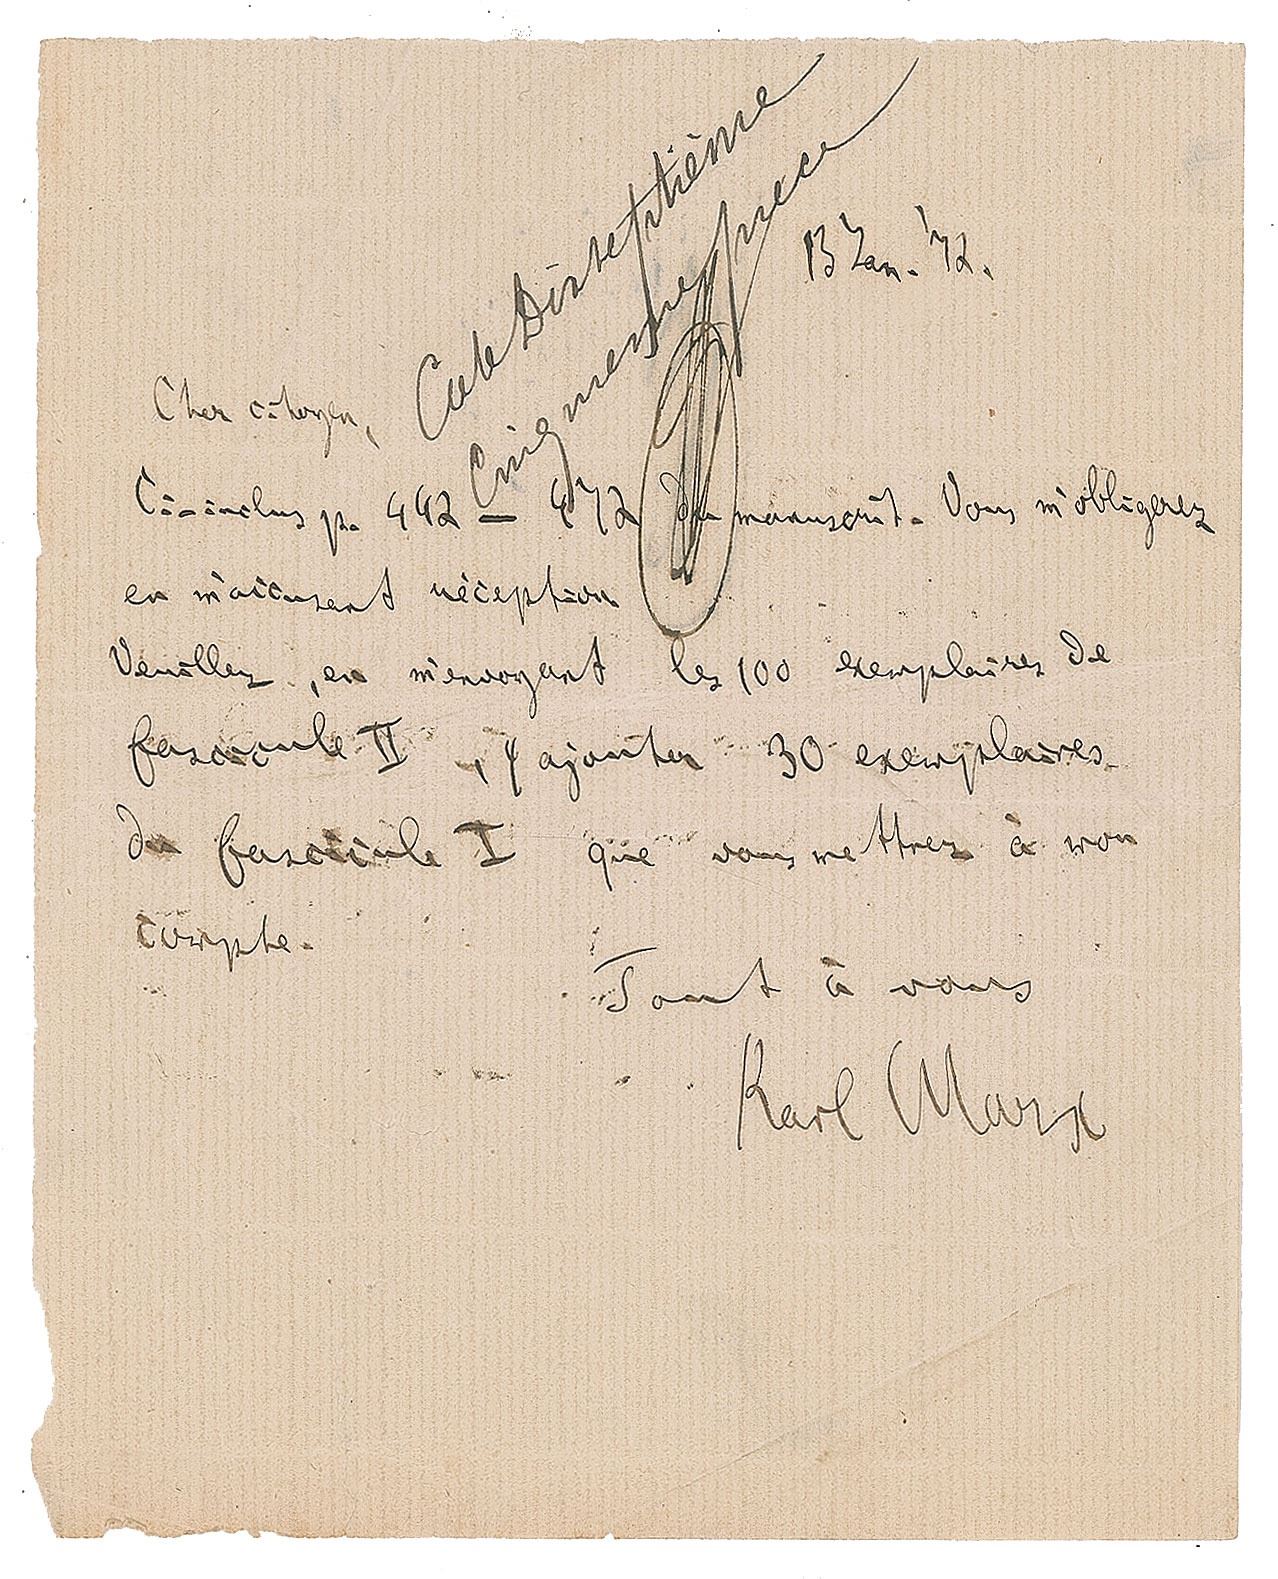 Cote Dixseptième
Cinquième pièce
13 Jan. '72.
Cher citoyen,
Ci-inclus p. 442 — 472 du manuscrit. Vous m'obligerez
en m'accusant réception
Veuillez, en m'envoyant les 100 exemplaires de
fascicule II, y ajouter 30 exemplaires
du fascicule I que vous mettrez à mon
compte.
Tout à vous
Karl Marx